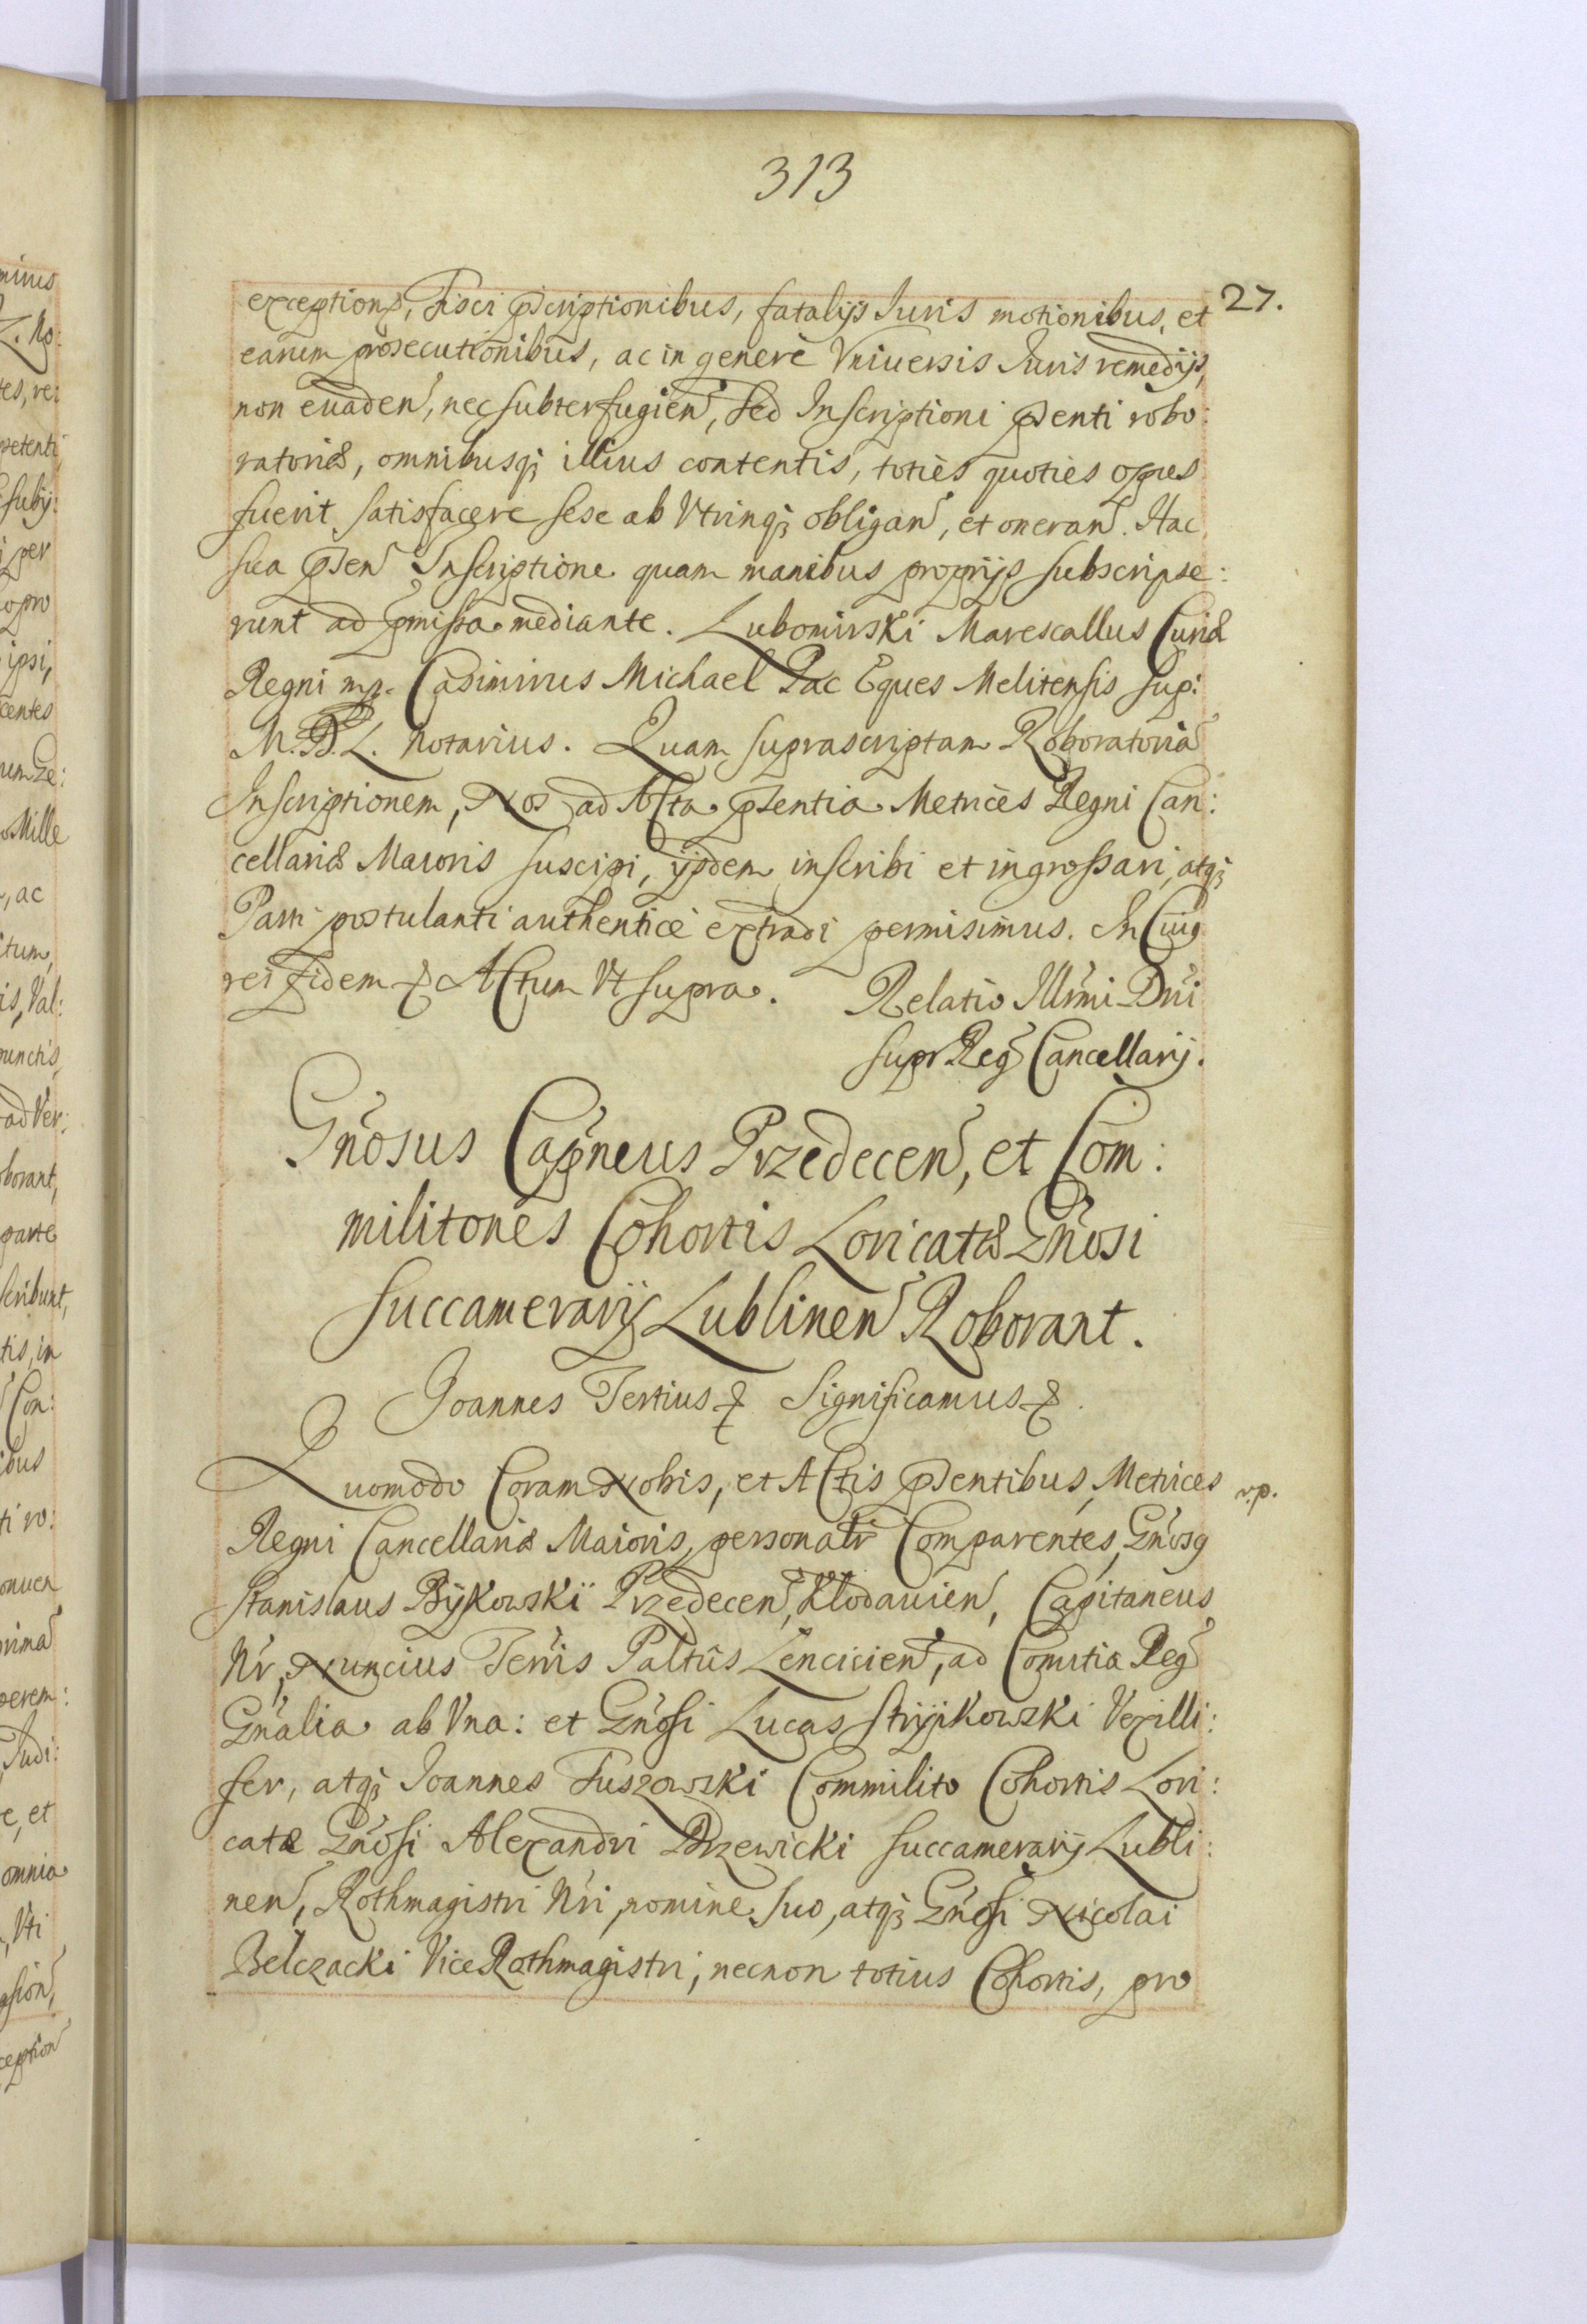 313
27.
exception, Fisci pscriptionibus, fatalijs Iuris motionibus, et
earum prosecutionibus, ac in genere Vniuersis Iuris remedijs,
non euaden, nec subterfugien, sed Inscriptioni psenti robo:
ratoriæ, omnibusq; illius contentis, toties quoties opus
fuerit satisfacere sese ab Vtrinq; obligan, et oneran. Hac
sua psen Inscriptione quam manibus proprijs subscripse:
runt ad pmissa mediante. Lubomirski Marescallus Curiæ
Regni mp. Casimirus Michael Pac Eques Melitensis sup:
M. D. L. Notarius. Quam suprascriptam Roboratoria
Inscriptionem, Nos ad Acta psentia Metrices Regni Can:
cellariæ Maioris suscipi, ijsdem inscribi et ingrossari, atq;
Parti postulanti authentice extradi permisimus. In Cuiq
rei fidem & Actum Vt supra. Relatio Illrmi Dni
supr. Reg Cancellarij.
Gnosus Capneus Przedecen, et Com:
militones Cohortis Loricatæ Gnosi
Succamerarij Lublinen Roborant.
Joannes Tertius & Significamus &.
Quomodo Coram Nobis, et Actis psentibus, Metrices
rp.
Regni Cancellariæ Maioris, personalr Comparentes, Gnosq
Stanislaus Bÿkowski Przedecen, Klodauien, Capitaneus
Nr, Nuncius Terris Paltûs Lencicien, ad Comitia Reg
Gnalia ab Vna: et Gnosi Lucas Stryikowski Vexilli:
fer, atq; Joannes Fuszowski Commilito Cohortis Lori:
catæ Gnosi Alexandri Drzewicki Succamerarij Lubli:
nen, Rothmagistri Nri, nomine suo, atq; Gnosi Nicolai
Belczacki ViceRothmagistri, necnon totius Cohortis, pro